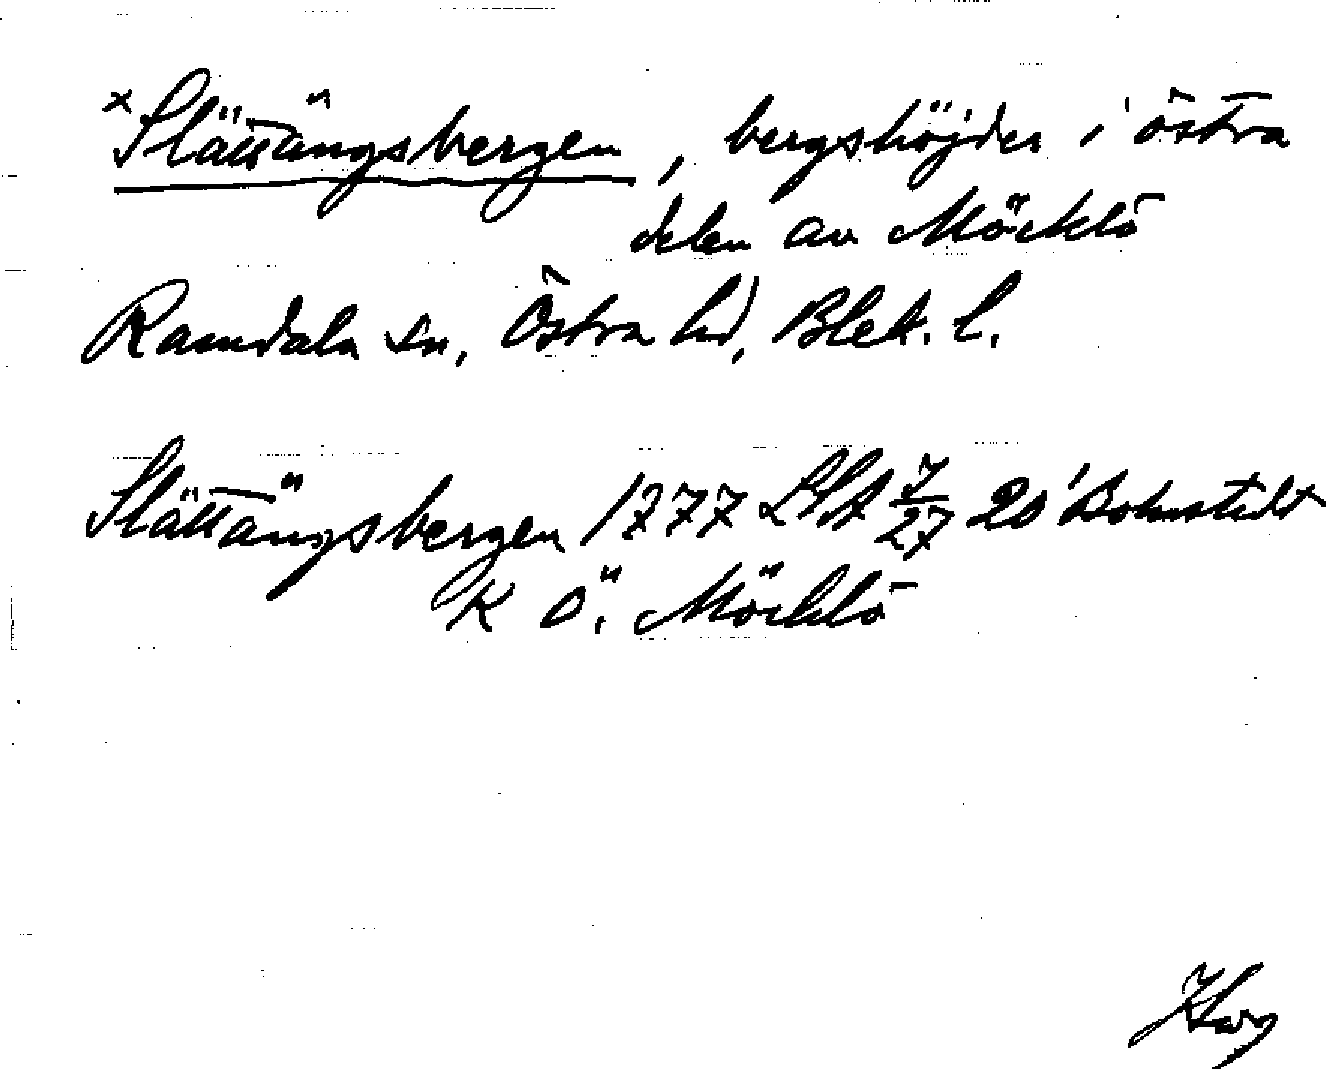 × Slättängsbergen, bergshöjder i östra
delen av Möcklö
Ramdala sn, Östra hd, Blek. l.
Slättängsbergen 1777 LSA 7/27 20 Bohnstedt
K Ö. Möcklö